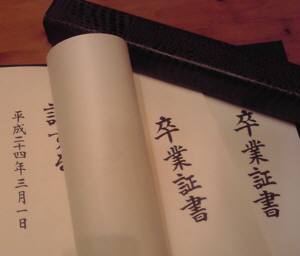 卒業証書
卒業証書
平成二十四年三月一日